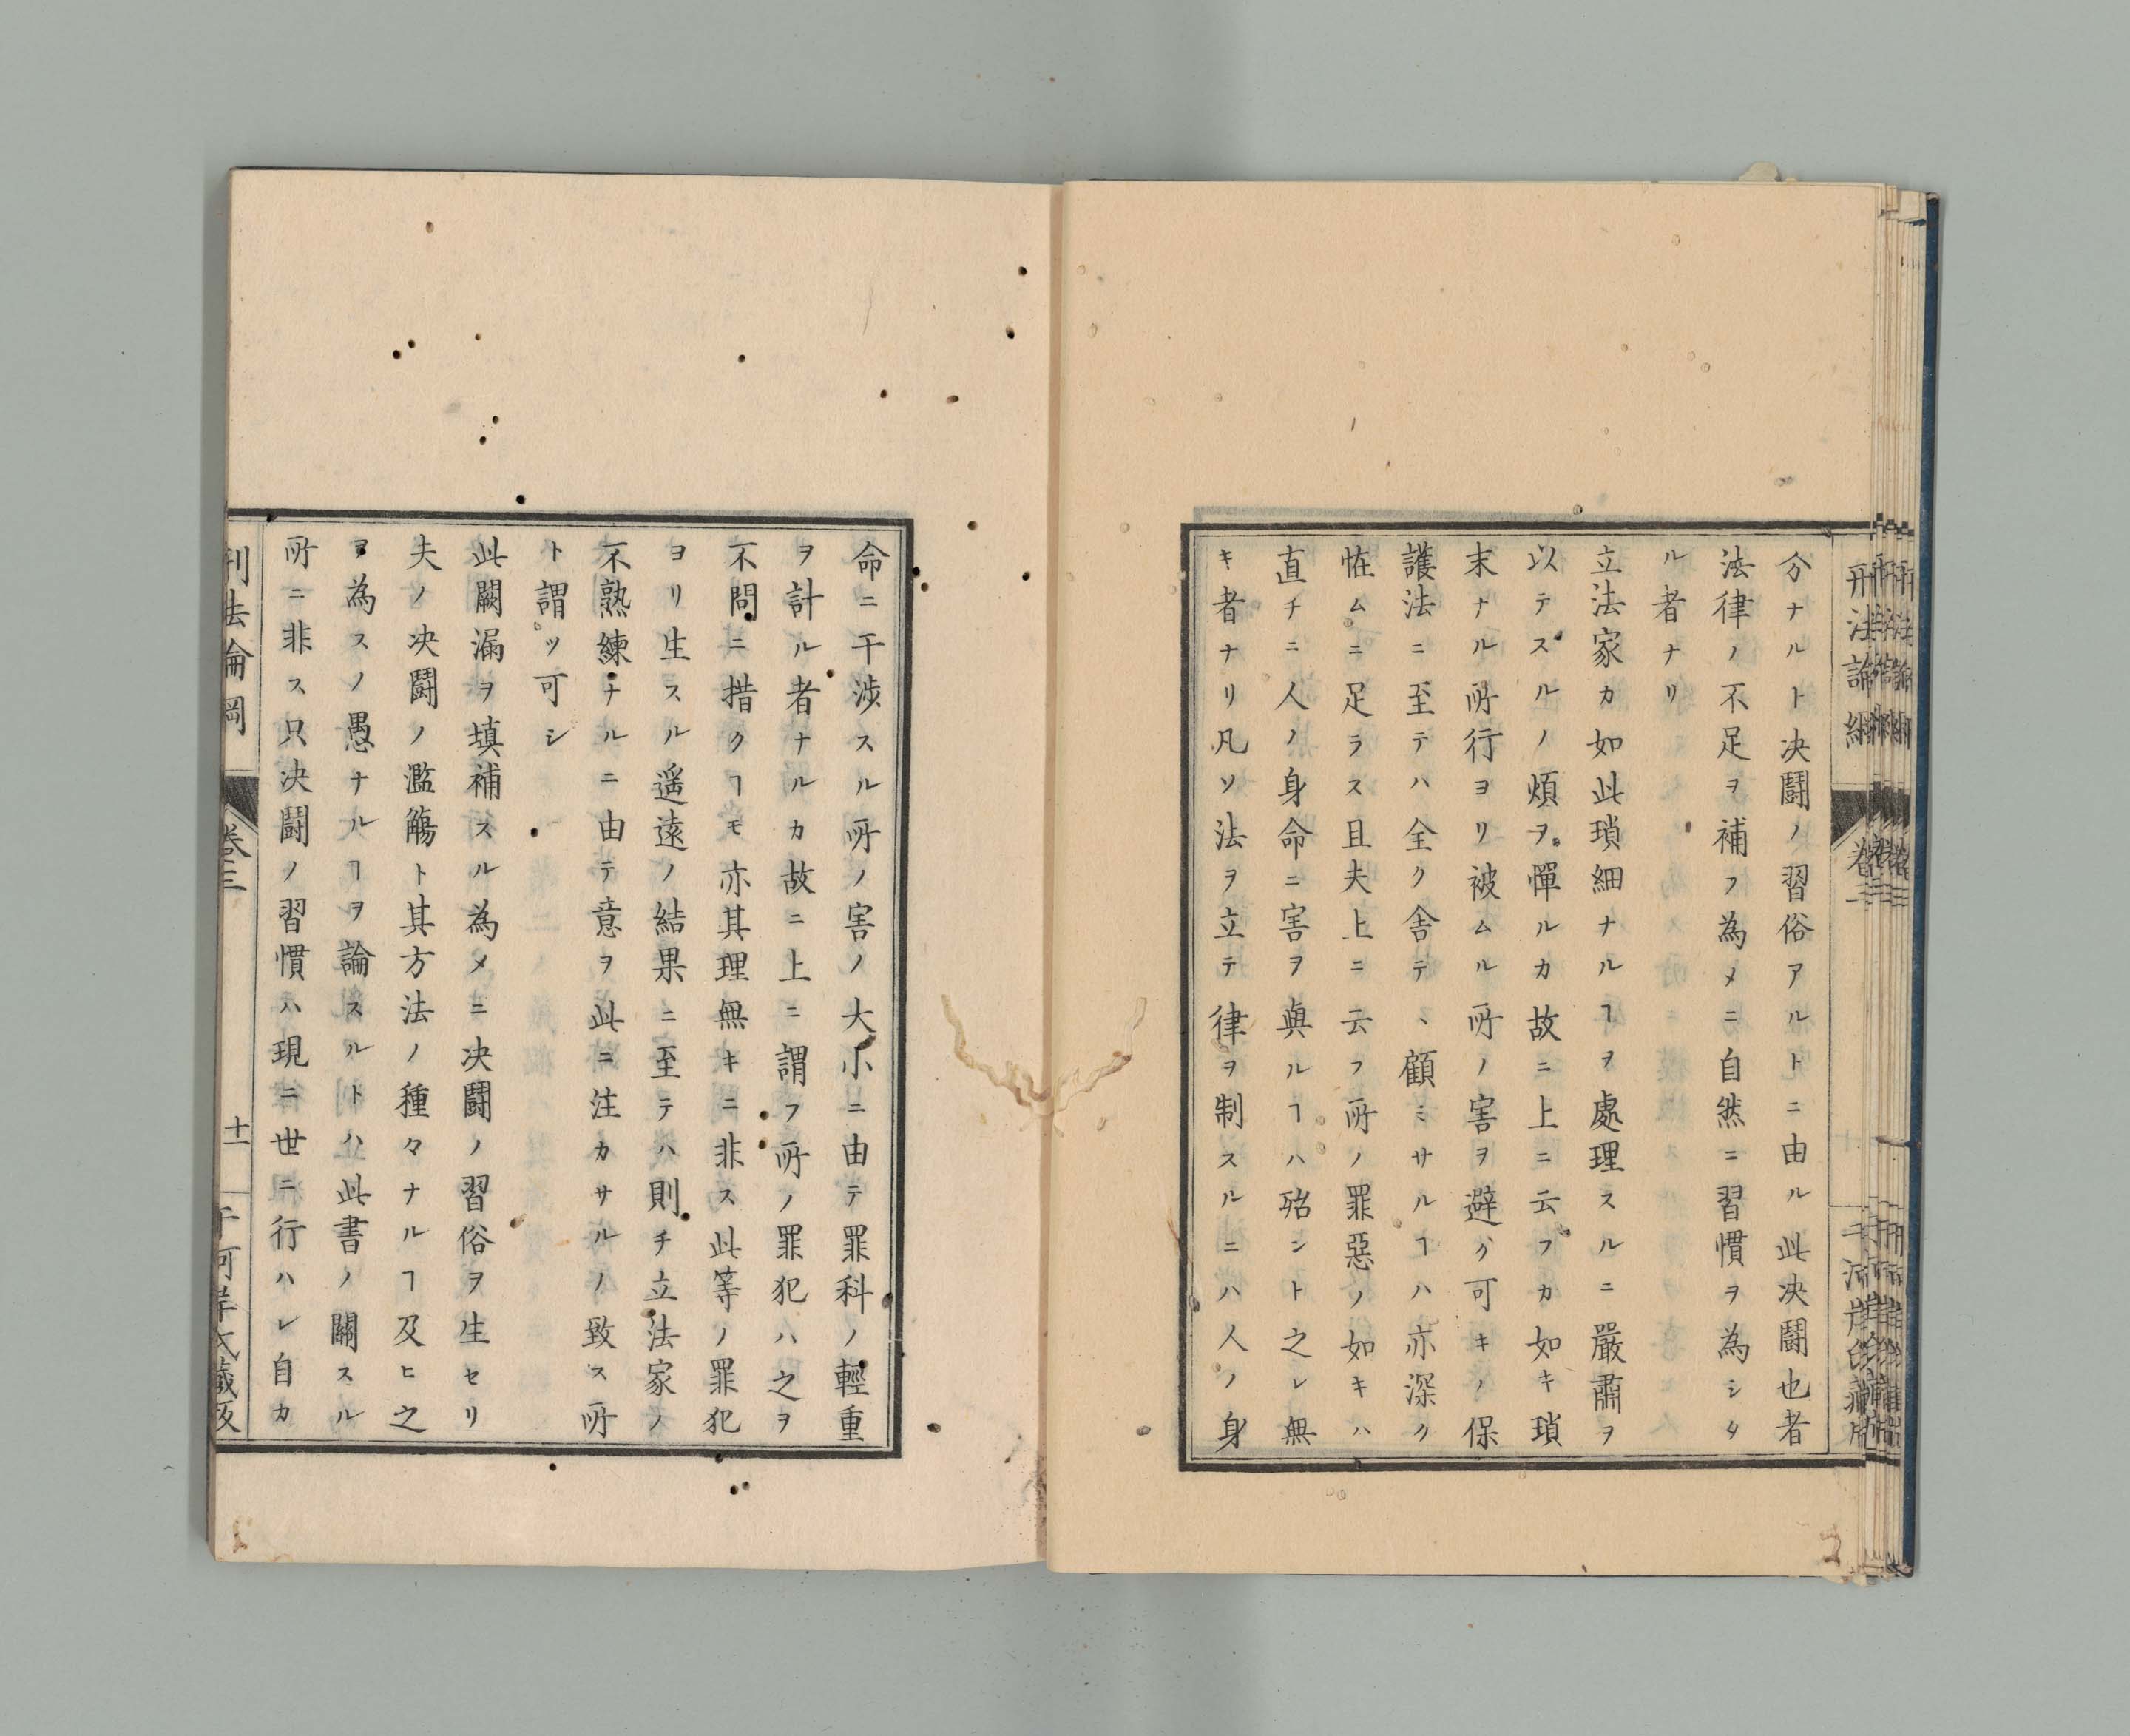 分ナルト决鬪ノ習俗アルトニ由ル此决鬪也者
法律ノ不足ヲ補フ為メニ自然ニ習慣ヲ為シタ
ル者ナリ
立法家カ如此瑣細ナルヿヲ處理スルニ嚴肅ヲ
以テスルノ煩ヲ憚ルカ故ニ上ニ云フカ如キ瑣
末ナル所行ヨリ被ムル所ノ害ヲ避ク可キノ保
護法ニ至テハ全ク舎テヽ顧ミサルヿハ亦深ク
恠ムニ足ラス且夫上ニ云フ所ノ罪惡ノ如キハ
直チニ人ノ身命ニ害ヲ與ルヿハ殆ント之レ無
キ者ナリ凡ソ法ヲ立テ律ヲ制スルニハ人ノ身
命ニ干渉スル所ノ害ノ大小ニ由テ罪科ノ輕重
ヲ計ル者ナルカ故ニ上ニ謂フ所ノ罪犯ハ之ヲ
不問ニ措クヿモ亦其理無キニ非ス此等ノ罪犯
ヨリ生スル遥遠ノ結果ニ至テハ則チ立法家ノ
不熟練ナルニ由テ意ヲ此ニ注カサルノ致ス所
ト謂ツ可シ
此闕漏ヲ填補スル為メニ决鬪ノ習俗ヲ生セリ
夫ノ决鬪ノ濫觴ト其方法ノ種々ナルヿ及ヒ之
ヲ為スノ愚ナルヿヲ論スルトハ此書ノ關スル
所ニ非ス只决鬪ノ習慣ハ現ニ世ニ行ハレ自カ
刑法論綱 卷三 十一 千河岸氏藏版